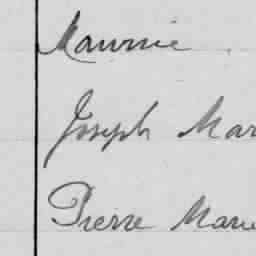 Maurice
Joseph Mar
Pierre Marie